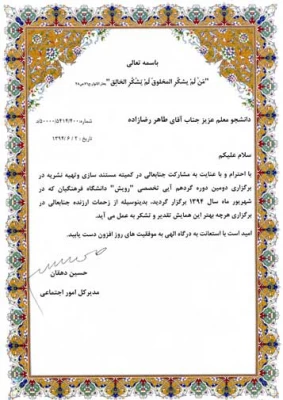 باسمه تعالی
"مَن لَم یَشکُرِ المَخلوق لَم یَشکُرِ الخالِق"
دانشجو معلم عزیز جناب آقای طاهر رضازاده
شماره:۵۰۰۰۰/۵۴۱۴/۴۰۰/د
تاریخ: ۱۳۹۴/۶/۳۰
سلام علیکم
با احترام و با عنایت به مشارکت جنابعالی در کمیته مستند سازی وتهیه نشریه در
برگزاری دومین دوره گردهم آیی تخصصی "رویش" دانشگاه فرهنگیان که در
شهریور ماه سال ۱۳۹۴ برگزار گردید، بدینوسیله از زحمات ارزنده جنابعالی در
برگزاری هرچه بهتر این همایش تقدیر و تشکر به عمل می آید.
امید است با استعانت به درگاه الهی به موفقیت های روز افزون دست یابید.
حسین دهقان
مدیرکل امور اجتماعی